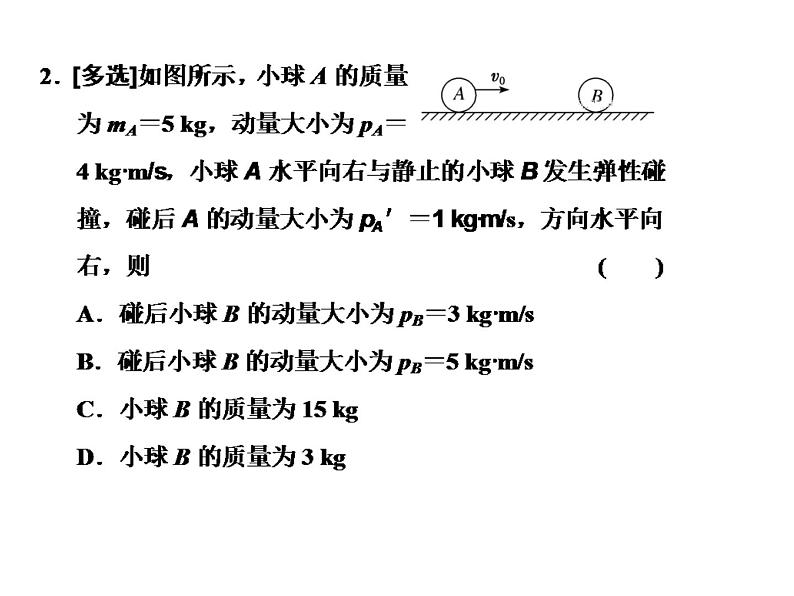 2. [多选]如图所示,小球 A 的质量
为 mA=5 kg,动量大小为 pA=
4 kg·m/s,小球 A 水平向右与静止的小球 B 发生弹性碰
撞,碰后 A 的动量大小为 pA′=1 kg·m/s,方向水平向
右,则 (  )
A v0 B
A. 碰后小球 B 的动量大小为 pB=3 kg·m/s
B. 碰后小球 B 的动量大小为 pB=5 kg·m/s
C. 小球 B 的质量为 15 kg
D. 小球 B 的质量为 3 kg